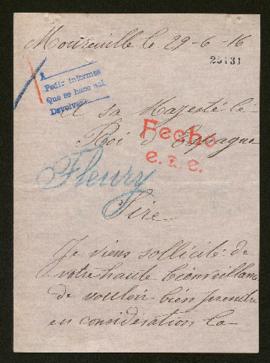 Moureuille le 29-6-16
25131
A
Pedir informes
Que se hace así
Devolver
A sa Majesté le
Roi d'Espagne
Fecho
e. z. e.
Fleury
Sire
Je viens sollicité de
votre haute bienveillance
de vouloir bien prendre
en considération la